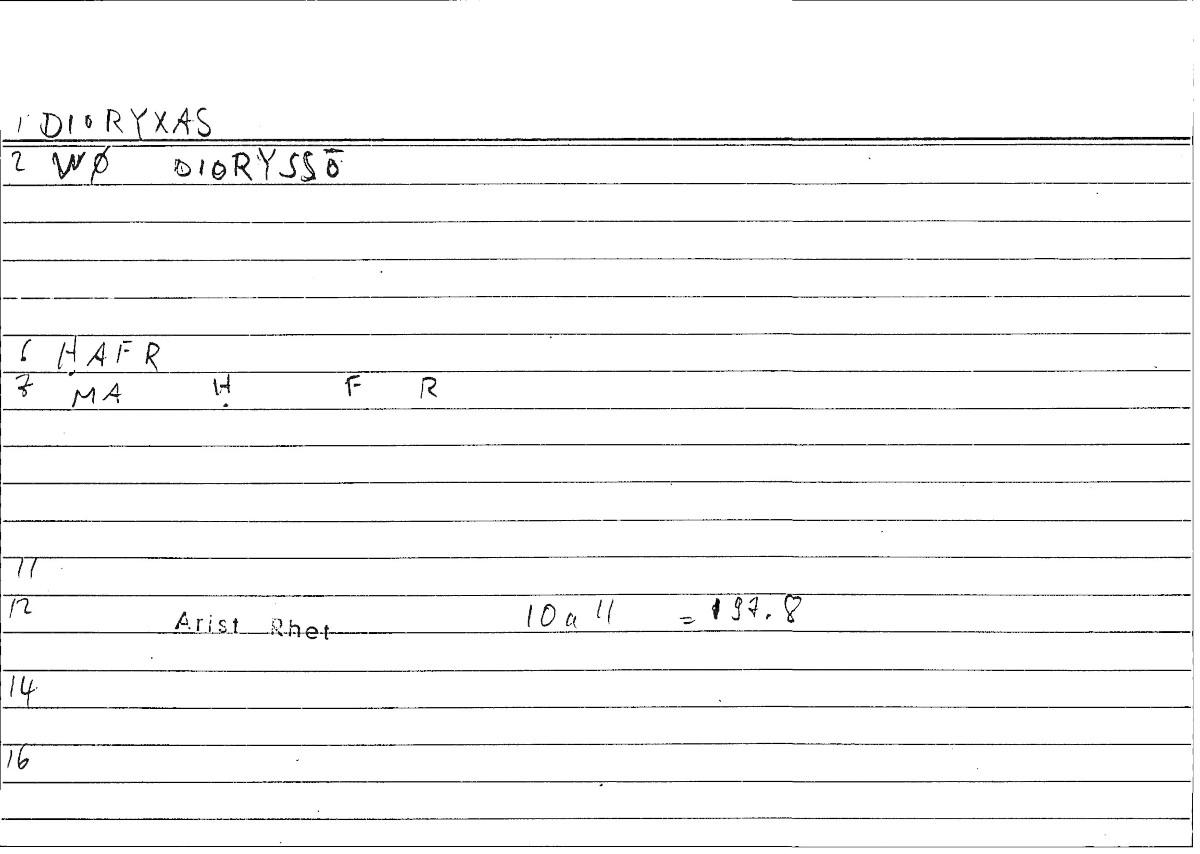 1 DIORYXAS
2 WØ DIORYSSŌ
6 ḤAFR
7 MA Ḥ F R
11
12 Arist Rhet 10 a 11 = 197.8
14
16